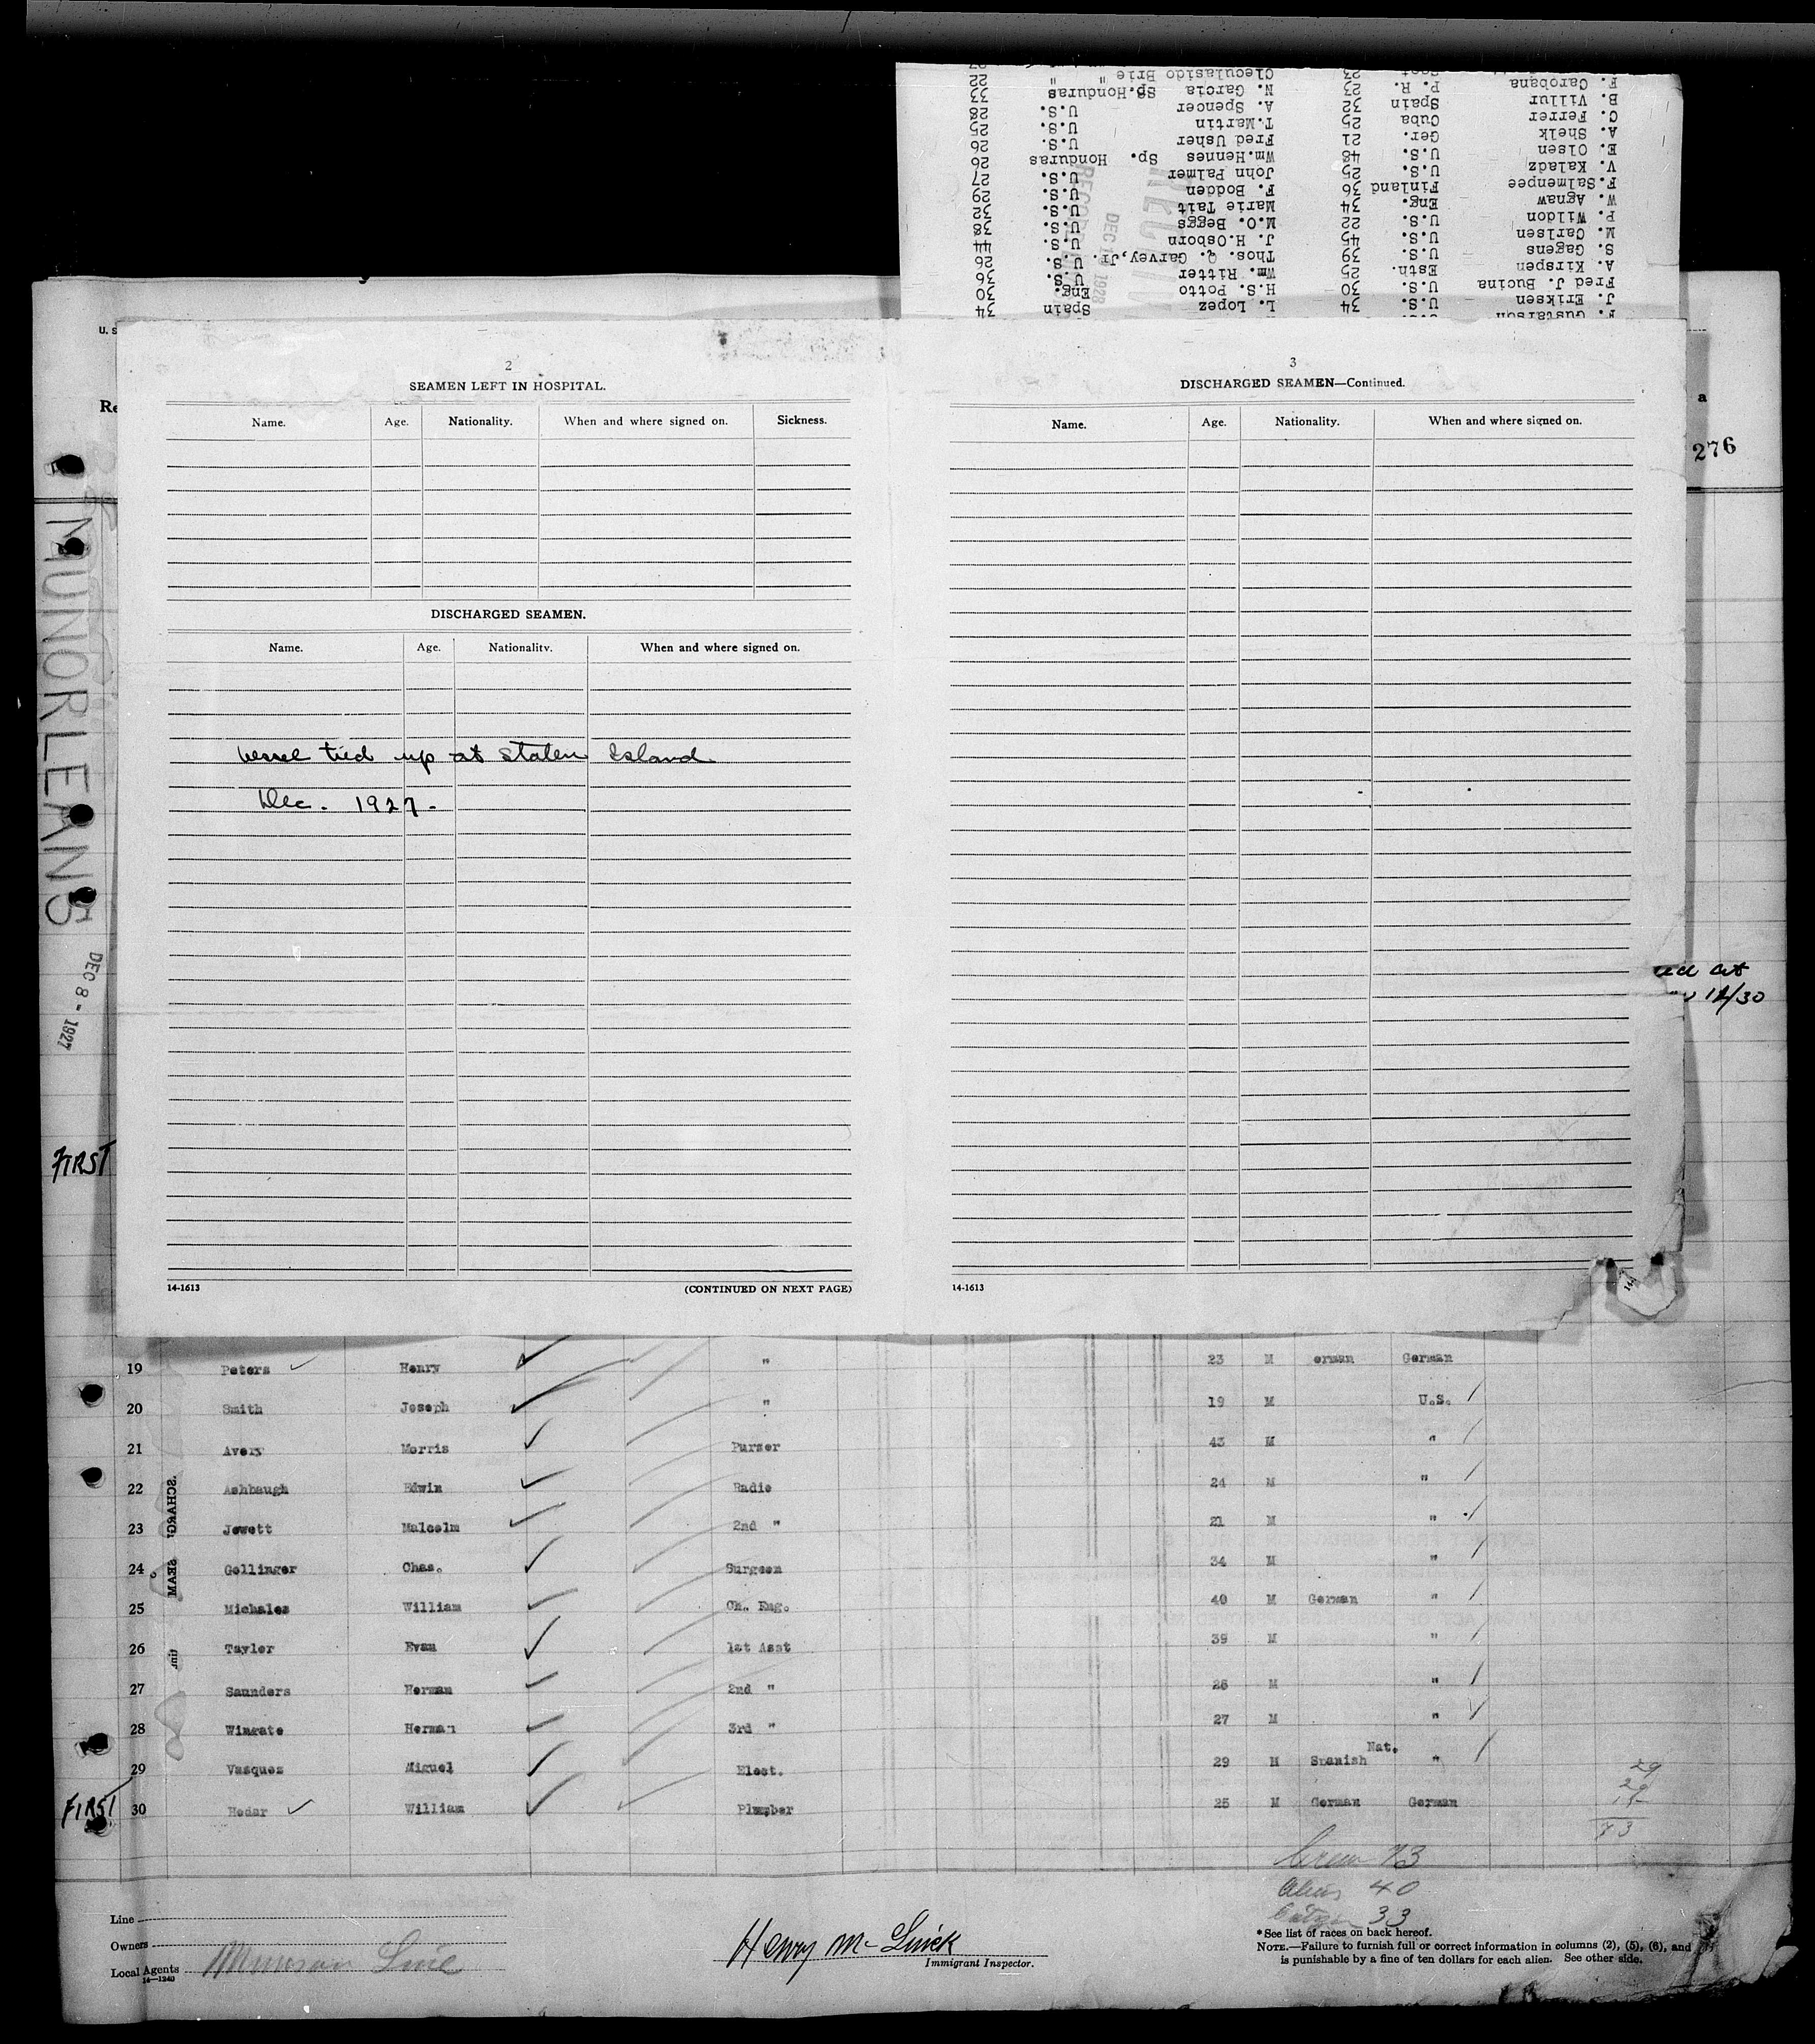 F. Carobana P. R. 23 Cleculasido Brie " " 22
B. Villur Spain 32 N. Garcia Sp. Honduras 33
C. Ferrer Cuba 25 A. Spencer U.S. 28
A. Shelk Ger. 21 T. Martin U.S. 25
E. Olsen U.S. 48 Fred Usher U.S. 26
V. Kaladz U.S. 25 Wm. Hennes Sp. Honduras 26
F. Salmenpee Finland 36 John Palmer U.S. 27
W. Agnaw Eng. 34 F. Bodden U.S. 29
P. Wildon U.S. 22 Marie Tait U.S. 32
M. Carlsen U.S. 45 M.O. Beggs U.S. 38
S. Gagens U.S. 39 J. H. Osborn U.S. 44
A. Kirspen Esth. 25 Thos. Q. Garvey, Jr. U.S. 26
Fred J. Bucina U.S. 30 Wm. Ritter U.S. 36
J. Eriksen U.S. 34 H.S. Potto Eng. 30
F. Gustafson U.S. L. Lopez Spain 34
DEC 1 1928
276
2
SEAMEN LEFT IN HOSPITAL.
Name. Age. Nationality. When and where signed on. Sickness.
DISCHARGED SEAMEN.
Name. Age. Nationality. When and where signed on.
Vessel tied up at Staten Island
Dec. 1927.
14-1613 (CONTINUED ON NEXT PAGE)
3
DISCHARGED SEAMEN—Continued.
Name. Age. Nationality. When and where signed on.
14-1613
MUNORLEANS
DEC 8 - 1927
FIRST
12/30
19 Peters Henry " 23 M erman German
20 Smith Joseph " 19 M U.S.
21 Avery Morris Purser 43 M "
22 Ashbaugh Edwin Radio 24 M "
23 Jewett Malcolm 2nd " 21 M "
24 Gollinger Chas. Surgeon 34 M "
25 Michales William Ch. Eng. 40 M German "
26 Tayler Evan 1st Asst 39 M "
27 Saunders Herman 2nd " 26 M "
28 Wingate Herman 3rd " 27 M "
29 Vasquez Miguel Elect. 29 M Spanish Nat. "
FIRST 30 Hedar William Plumber 25 M German German
29
29
15
73
Crew 73
Aliens 40
Citizen 33
Line
Owners
Local Agents Munson Line
14—1240
Henry McLinick
Immigrant Inspector.
* See list of races on back hereof.
NOTE.—Failure to furnish full or correct information in columns (2), (5), (6), and
is punishable by a fine of ten dollars for each alien. See other side.